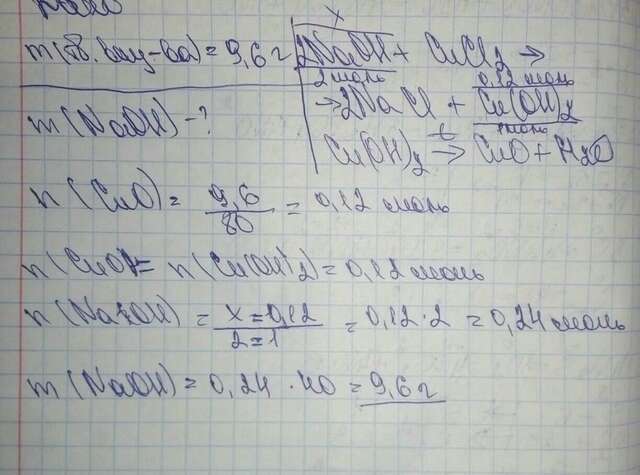 m(тв. вещ-ва) = 9,6 г
m(NaOH) - ?
x
2NaOH + CuCl2 →
2 моль 0,12 моль
→ 2NaCl + Cu(OH)2
1 моль
Cu(OH)2 t→ CuO + H2O
n(CuO) = 9,6/80 = 0,12 моль
n(CuO) = n(Cu(OH)2) = 0,12 моль
n(NaOH) = x = 0,12 / 2 = 1 = 0,12 · 2 = 0,24 моль
m(NaOH) = 0,24 · 40 = 9,6 г